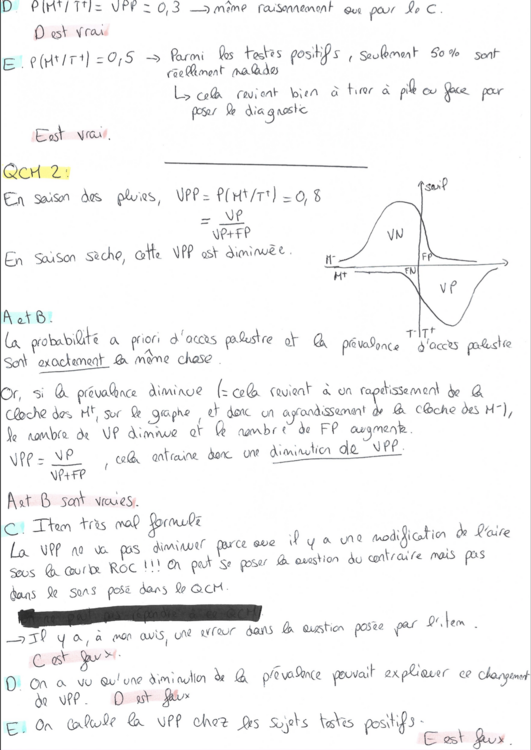 D. P(M+/T+) = VPP = 0,3 → même raisonnement que pour le C.
D est vrai
E. P(M+/T+) = 0,5 → Parmi les testés positifs, seulement 50 % sont
réellement malades
↳ cela revient bien à tirer à pile ou face pour
poser le diagnostic
E est vrai.
QCM 2 :
En saison des pluies, VPP = P(M+/T+) = 0,8
= VP
VP+FP
En saison sèche, cette VPP est diminuée.
seuil
VN
FP
M-
M+
FN
VP
T- T+
A et B.
La probabilité a priori d'accès palustre et la prévalence d'accès palustre
sont exactement la même chose.
Or, si la prévalence diminue (= cela revient à un rapetissement de la
cloche des M+, sur le graphe, et donc un agrandissement de la cloche des M-),
le nombre de VP diminue et le nombre de FP augmente.
VPP = VP , cela entraine donc une diminution de VPP.
VP+FP
A et B sont vraies.
C. Item très mal formulé
La VPP ne va pas diminuer parce que il y a une modification de l'aire
sous la courbe ROC !!! On peut se poser la question du contraire mais pas
dans le sens posé dans le QCM.
→ Il y a, à mon avis, une erreur dans la question posée par l'item.
C est faux.
D. On a vu qu'une diminution de la prévalence pouvait expliquer ce changement
de VPP. D est faux
E. On calcule la VPP chez les sujets testés positifs.
E est faux.